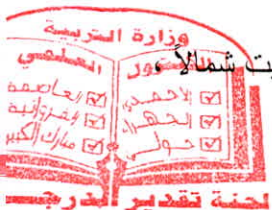 وزارة التربية
ت شمالاً ،
التوجيه الفني
الأحمدي
الجهراء
حولي
العاصمة
الفروانية
مبارك الكبير
لجنة تقدير الدرجـــ